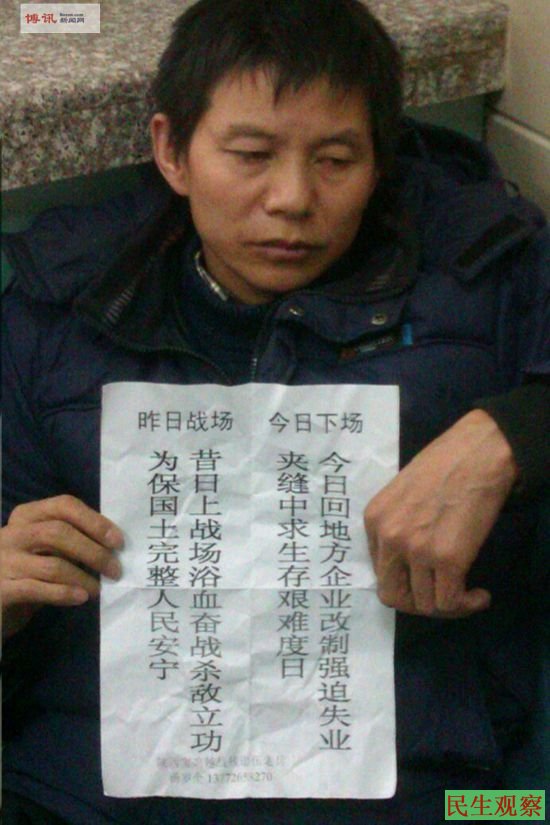 博讯
Boxun.com
新闻网
昨日战场 今日下场
今日回地方企业改制强迫失业
夹缝中求生存艰难度日
昔日上战场浴血奋战杀敌立功
为保国土完整人民安宁
民生观察